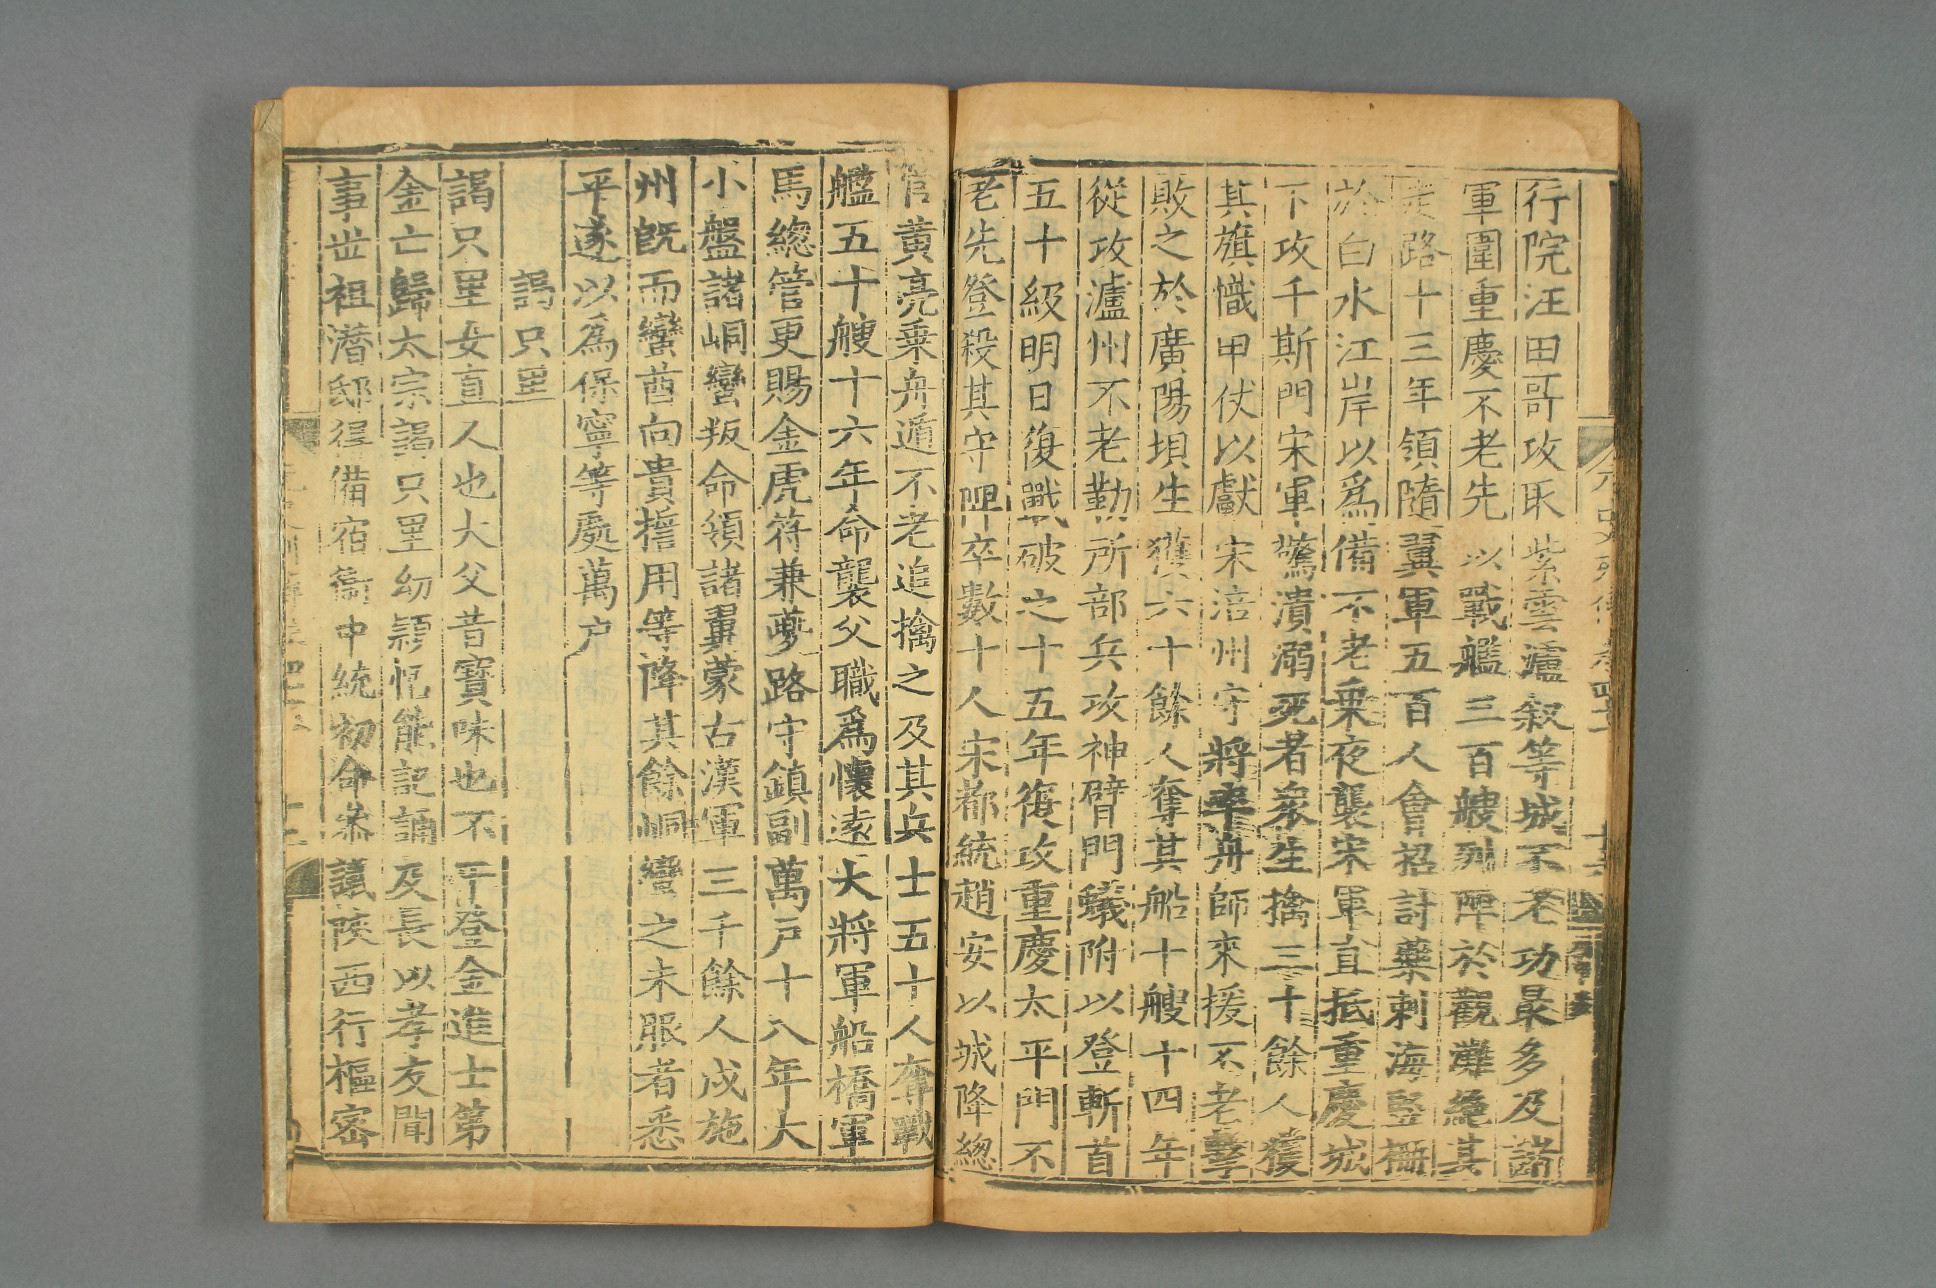 行院汪田哥攻取紫雲瀘叙等城不老功最多及諸
軍圍重慶不老先以戰艦三百艘列陣於觀灘絶其
走路十三年領隨翼軍五百人會招討藥剌海竪柵
於白水江岸以爲備不老乗夜襲宋軍直抵重慶城
下攻千斯門宋軍驚潰溺死者衆生擒三十餘人獲
其旗幟甲仗以獻宋涪州守將率舟師來援不老擊
敗之於廣陽垻生獲六十餘人奪其船十艘十四年
從攻瀘州不老勒所部兵攻神臂門蟻附以登斬首
五十級明日復戰破之十五年復攻重慶太平門不
老先登殺其守陴卒數十人宋都統趙安以城降總
管黄亮乗舟遁不老追擒之及其兵士五十人奪戰
艦五十艘十六年命襲父職爲懷遠大將軍船橋軍
馬總管更賜金虎符兼夔路守鎮副萬戸十八年大
小盤諸峒蠻叛命領諸翼蒙古漢軍三千餘人戍施
州旣而蠻酋向貴擔用等降其餘峒蠻之未服者悉
平遂以爲保寧等處萬户
謁只里
謁只里女直人也大父昔寶味也不干登金進士第
金亡歸太宗謁只里幼頴悟能記誦及長以孝友聞
事世祖潛邸得備宿衞中統初命叅議陜西行樞密